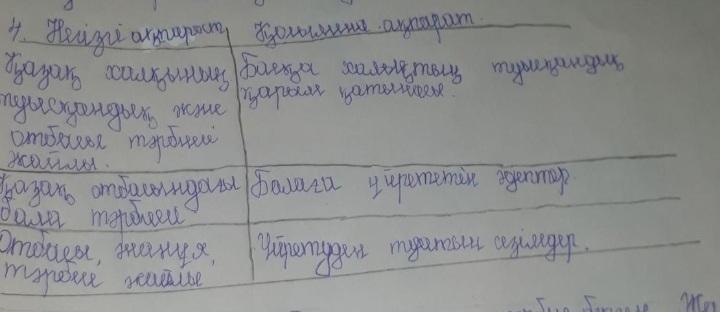 4. Негізгі ақпарат Қосымша ақпарат.
Қазақ халқының Басқа халықтың туысқандық
туысқандық және қарым қатынасы.
отбасы тәрбиесі
жайлы.
Қазақ отбасындағы Балаға үйрететін әдептер.
бала тәрбиесі
Отбасы, жанұя, Үйретуден туатын сезімдер.
тәрбие жайлы